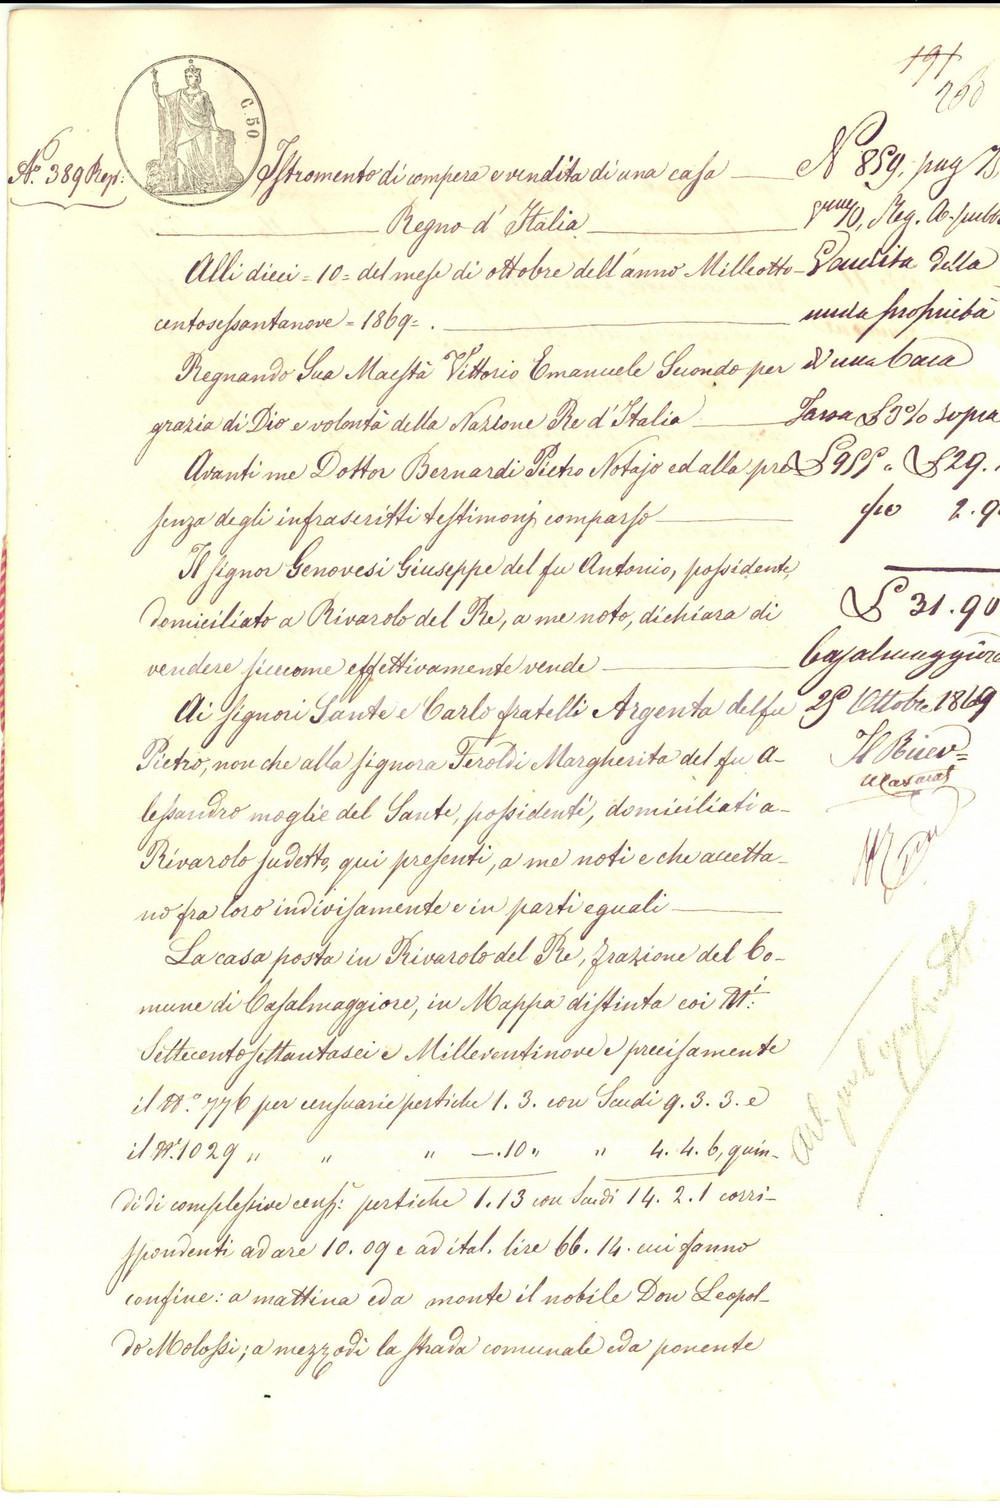 191
260
C. 50
N.° 389 Rep.:
Istromento di compera e vendita di una casa
Regno d'Italia
Alli dieci = 10 = del mese di ottobre dell'anno Milleotto-
centosessantanove = 1869 = .
Regnando Sua Maestà Vittorio Emanuele Secondo per
grazia di Dio e volontà della Nazione Re d'Italia
Avanti me Dottor Bernardi Pietro Notajo ed alla pre
senza degli infrascritti testimonj comparso
Il signor Genovesi Giuseppe del fu Antonio, possidente,
domiciliato a Rivarolo del Re, a me noto, dichiara di
vendere siccome effettivamente vende
Ai signori Sante e Carlo fratelli Argenta del fu
Pietro, non che alla signora Feroldi Margherita del fu A-
lessandro moglie del Sante, possidenti, domiciliati a
Rivarolo sudetto, qui presenti, a me noti e che accetta-
no fra loro indivisamente e in parti eguali
La casa posta in Rivarolo del Re, frazione del Co-
mune di Casalmaggiore, in Mappa distinta coi N.i
Settecentosettantasei e Milleventinove e precisamente
il N.° 776 per censuarie pertiche 1. 3. con Scudi 9. 3. 3. e
il N.° 1029 „ „ „ —.10 „ „ 4. 4. 6, quin-
di di complessive cens.: pertiche 1.13 con Scudi 14. 2. 1 corri-
spondenti ad are 10. 09 e ad ital. lire 66. 14. cui fanno
confine: a mattina ed a monte il nobile Don Leopol-
do Molossi; a mezzodì la strada comunale ed a ponente
N° 859, pag
Reg. A. pubb
Vendita della
nuda proprietà
di una Casa
Tassa £ 3% sopra
£ 955 „ £ 29.
2. 9
£ 31. 90
Casalmaggiore
25 Ottobre 1869
Il Ricev=